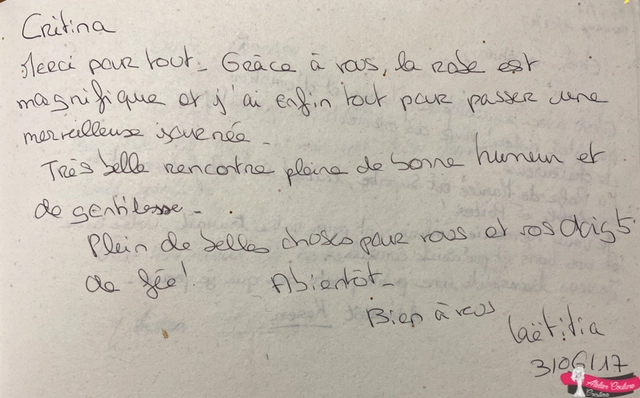 Critina
Merci pour tout_ Grâce à vous, la robe est
magnifique et j'ai enfin tout pour passer une
merveilleuse journée_
Très belle rencontre pleine de bonne humeur et
de gentilesse_
Plein de belles choses pour vous et vos doigts
de fée! Abientôt_
Bien à vous
Laëtitia
3106/17
Atelier Couture